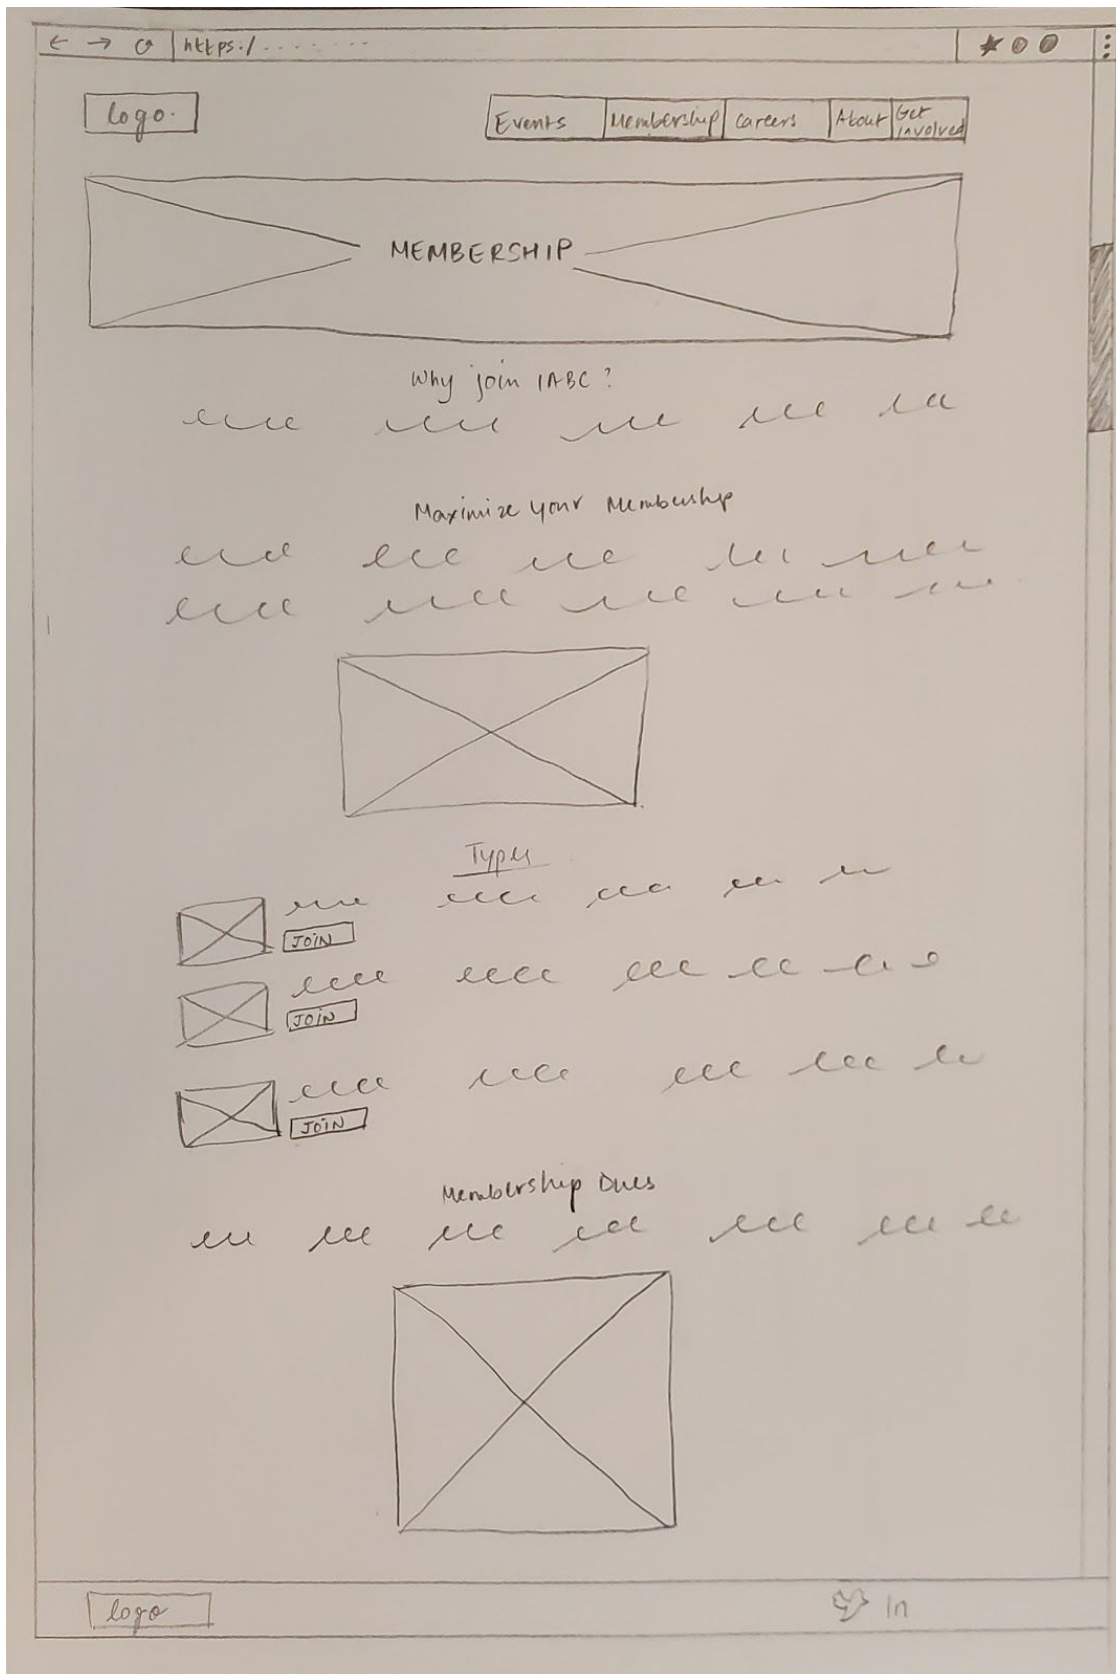 https:/ . . . . . . .
logo.
Events Membership Careers About Get involved
MEMBERSHIP
Why join IABC?
Maximize your Membership
Types
JOIN
JOIN
JOIN
Membership Dues
logo
in